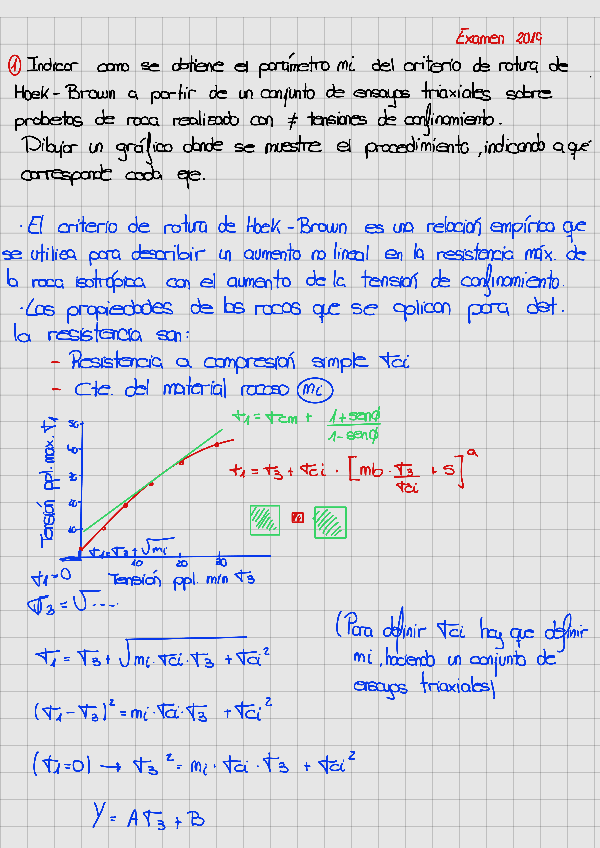 Examen 2019
① Indicar como se obtiene el parámetro mi del criterio de rotura de
Hoek-Brown a partir de un conjunto de ensayos triaxiales sobre
probetas de roca realizado con ≠ tensiones de confinamiento.
Dibujar un gráfico donde se muestre el procedimiento, indicando a qué
corresponde cada eje.
· El criterio de rotura de Hoek-Brown es una relación empírica que
se utiliza para describir un aumento no lineal en la resistencia máx. de
la roca isotrópica con el aumento de la tensión de confinamiento.
· Las propiedades de las rocas que se aplican para det.
la resistencia son:
- Resistencia a compresión simple σci
- Cte. del material rocoso mi
σ1 = σcm + (1+senϕ)/(1-senϕ)
σ1 = σ3 + σci · [mb · σ3/σci + s]^a
Tensión ppl. max. σ1
σ1=σ3+√mi
10 20 30
Tensión ppl. min σ3
σ1=0
σ3 = √····
(Para definir σci hay que definir
mi, haciendo un conjunto de
ensayos triaxiales)
σ1 = σ3 + √mi·σci·σ3 + σci²
(σ1-σ3)² = mi·σci·σ3 + σci²
(σ1=0) → σ3² = mi·σci·σ3 + σci²
Y = Aσ3 + B